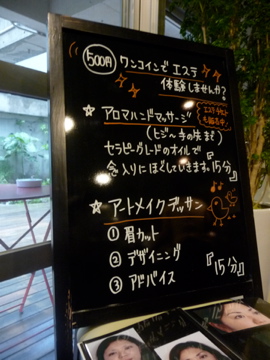 500円 ワンコインで エステ
体験しませんか?
☆ アロマハンドマッサージ
(ヒジ～手の先まで)
セラピーグレードのオイルで
念入りにほぐしていきます。『15分』
☆ アートメイクデッサン
① 眉カット
② デザイニング
③ アドバイス
『15分』